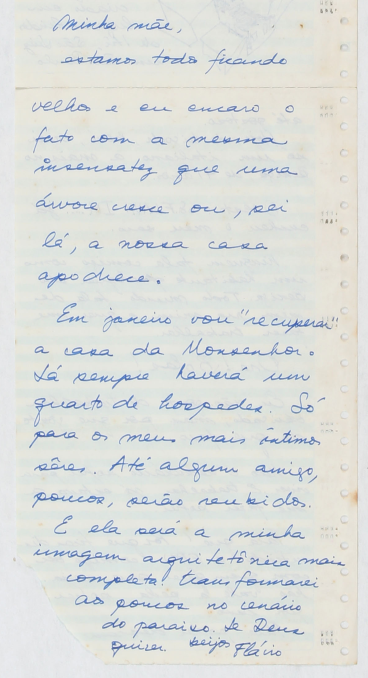 Minha mãe,
estamos todo ficando
velhos e eu encaro o
fato com a mesma
insensatez que uma
árvore cresce ou, sei
lá, a nossa casa
apodrece.
Em janeiro vou "recuperar"
a casa da Monsenhor.
Lá sempre haverá um
quarto de hospedes. Só
para os meus mais íntimos
sêres. Até algum amigo,
poucos, serão recebidos.
E ela será a minha
imagem arquitetônica mais
completa. Transformarei
aos poucos no cenário
do paraíso. Se Deus
quiser. beijos Flávio